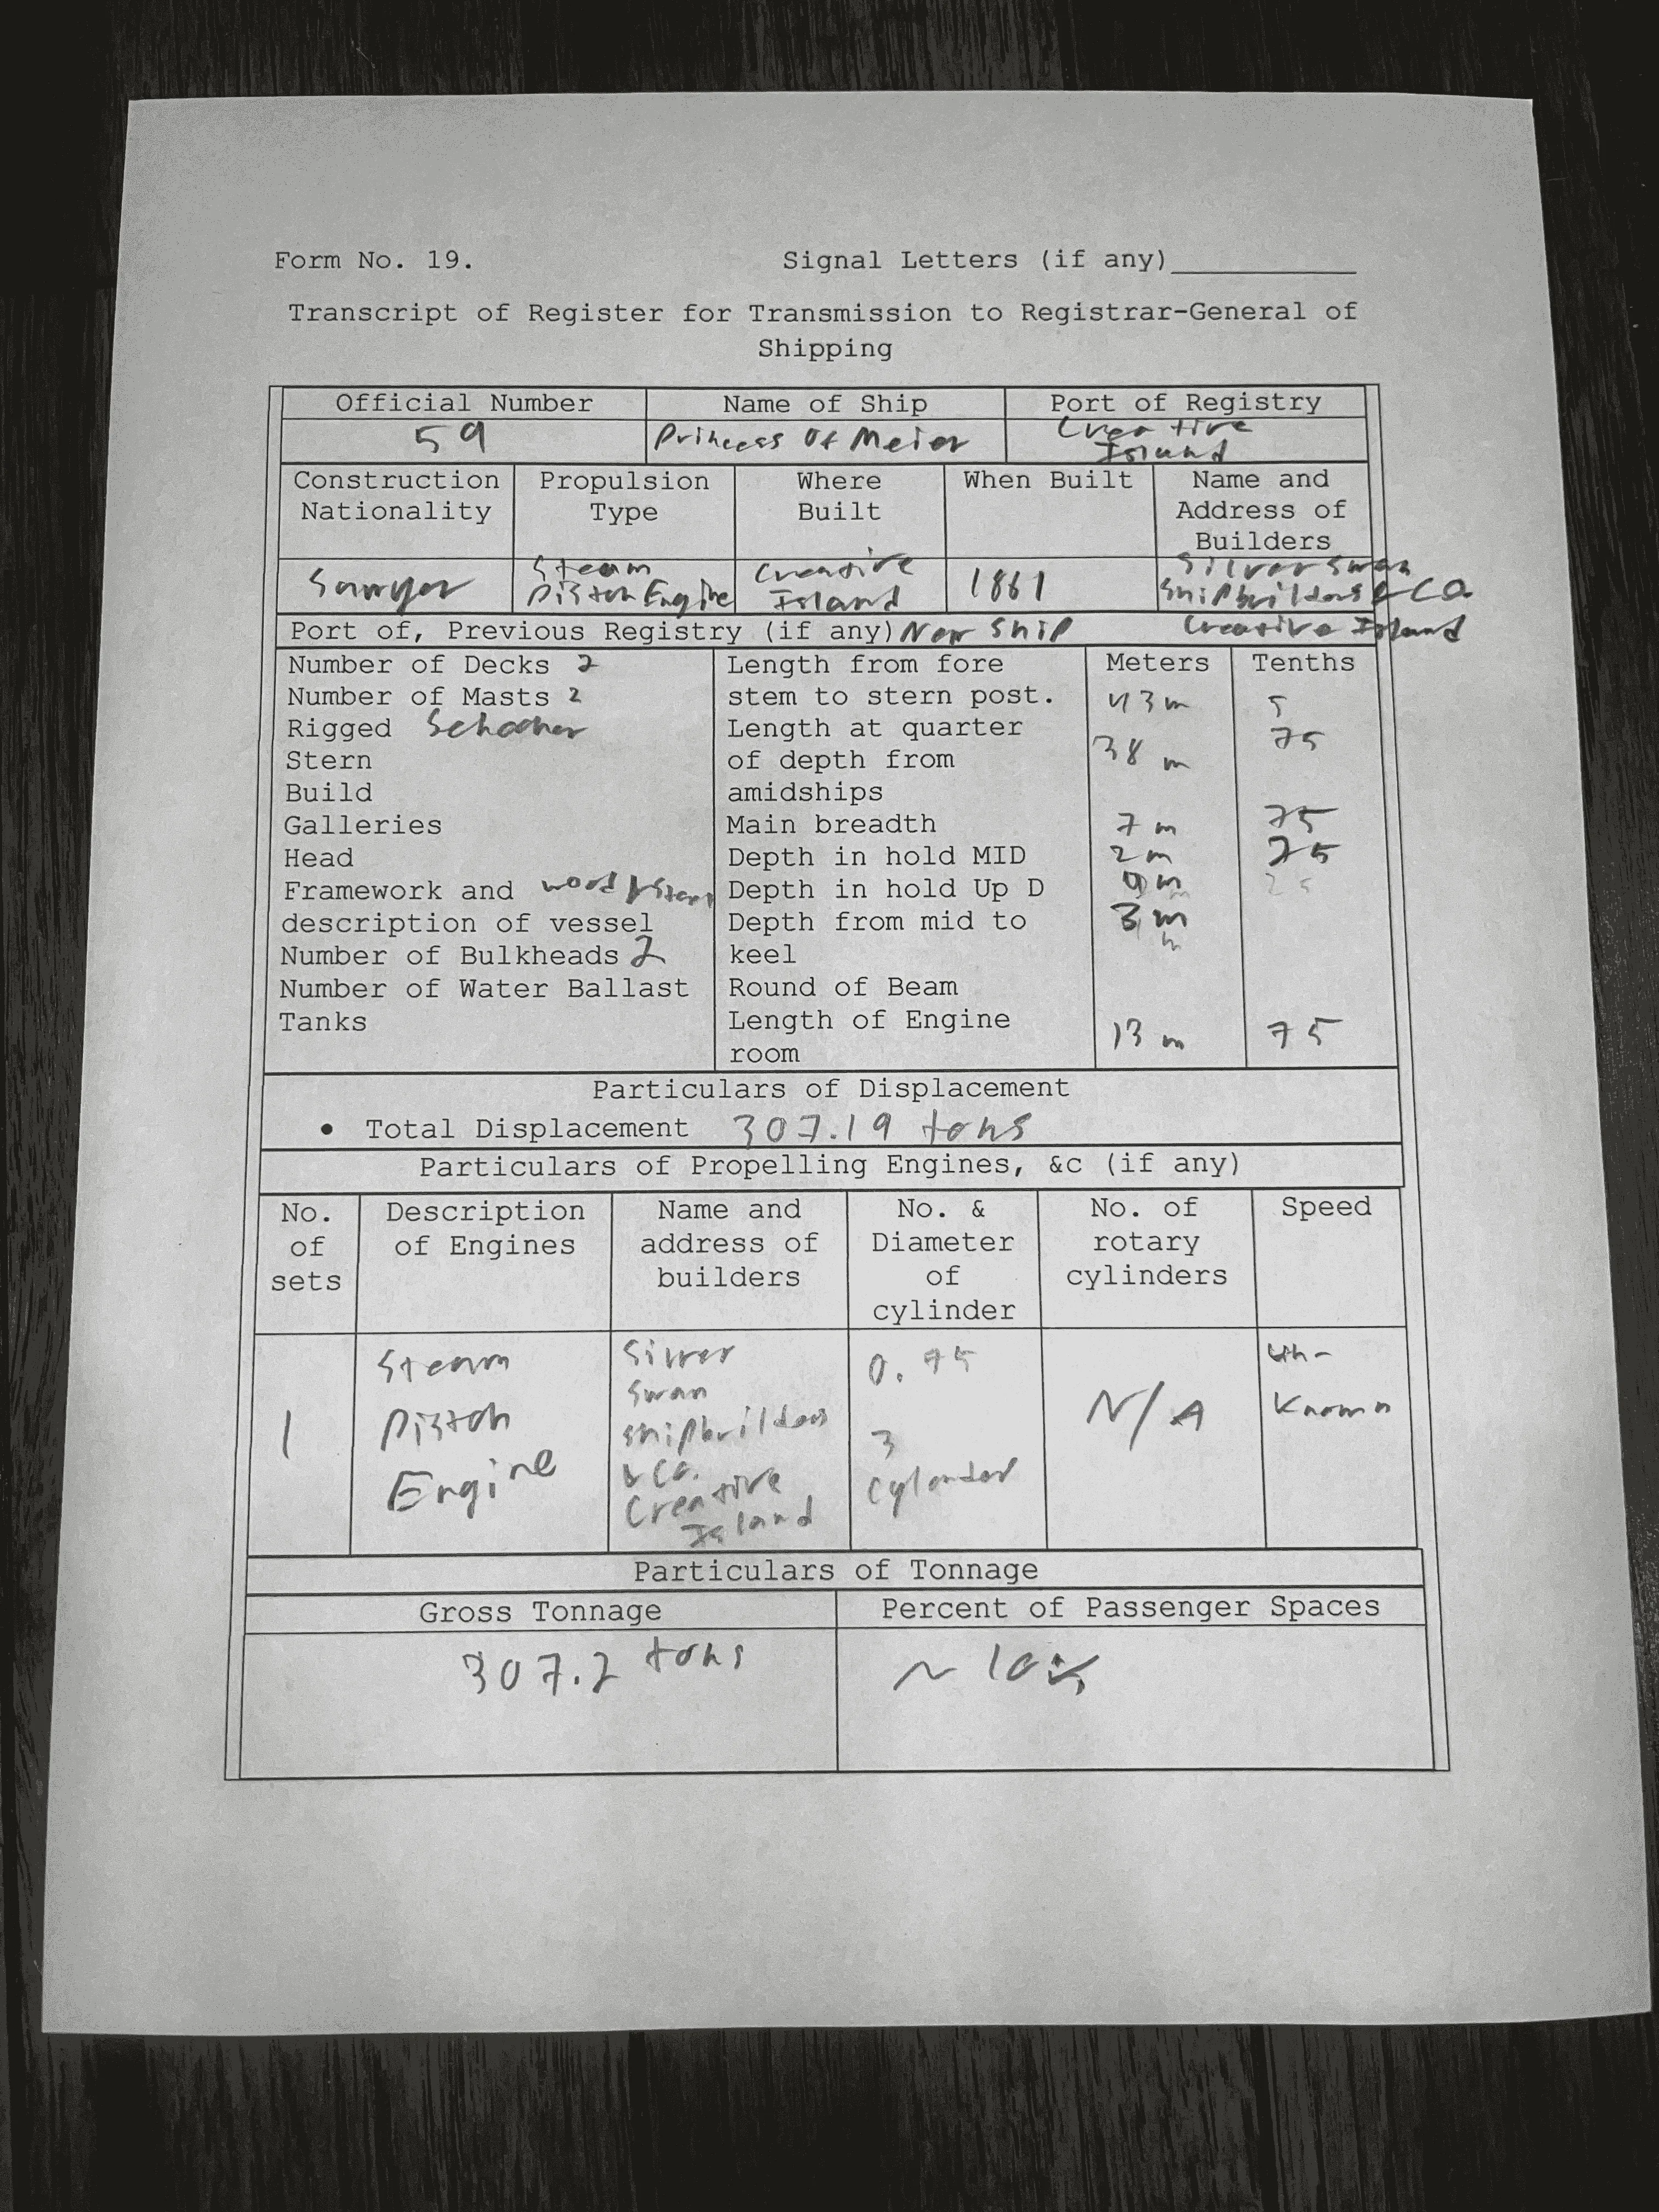 Form No. 19. Signal Letters (if any)
Transcript of Register for Transmission to Registrar-General of
Shipping
Official Number Name of Ship Port of Registry
59 Princess Of Meier Creative
Island
Construction Propulsion Where When Built Name and
Nationality Type Built Address of
Builders
Sawyer Steam Creative 1861 Silver Swan
Piston Engine Island Shipbuilders & Co.
Port of, Previous Registry (if any) New Ship Creative Island
Number of Decks 2 Length from fore Meters Tenths
Number of Masts 2 stem to stern post. 43 m 5
Rigged Schooner Length at quarter 75
Stern of depth from 38 m
Build amidships
Galleries Main breadth 7 m 75
Head Depth in hold MID 2 m 75
Framework and wood Depth in hold Up D m
description of vessel Depth from mid to 3 m
Number of Bulkheads 2 keel
Number of Water Ballast Round of Beam
Tanks Length of Engine 13 m 75
room
Particulars of Displacement
• Total Displacement 307.19 tons
Particulars of Propelling Engines, &c (if any)
No. Description Name and No. & No. of Speed
of of Engines address of Diameter rotary
sets builders of cylinders
cylinder
Steam Silver 0.75 Un-
Swan
1 Piston Shipbuilders 3 N/A Known
Engine & Co. Cylender
Creative
Island
Particulars of Tonnage
Gross Tonnage Percent of Passenger Spaces
307.2 tons ~ 10%